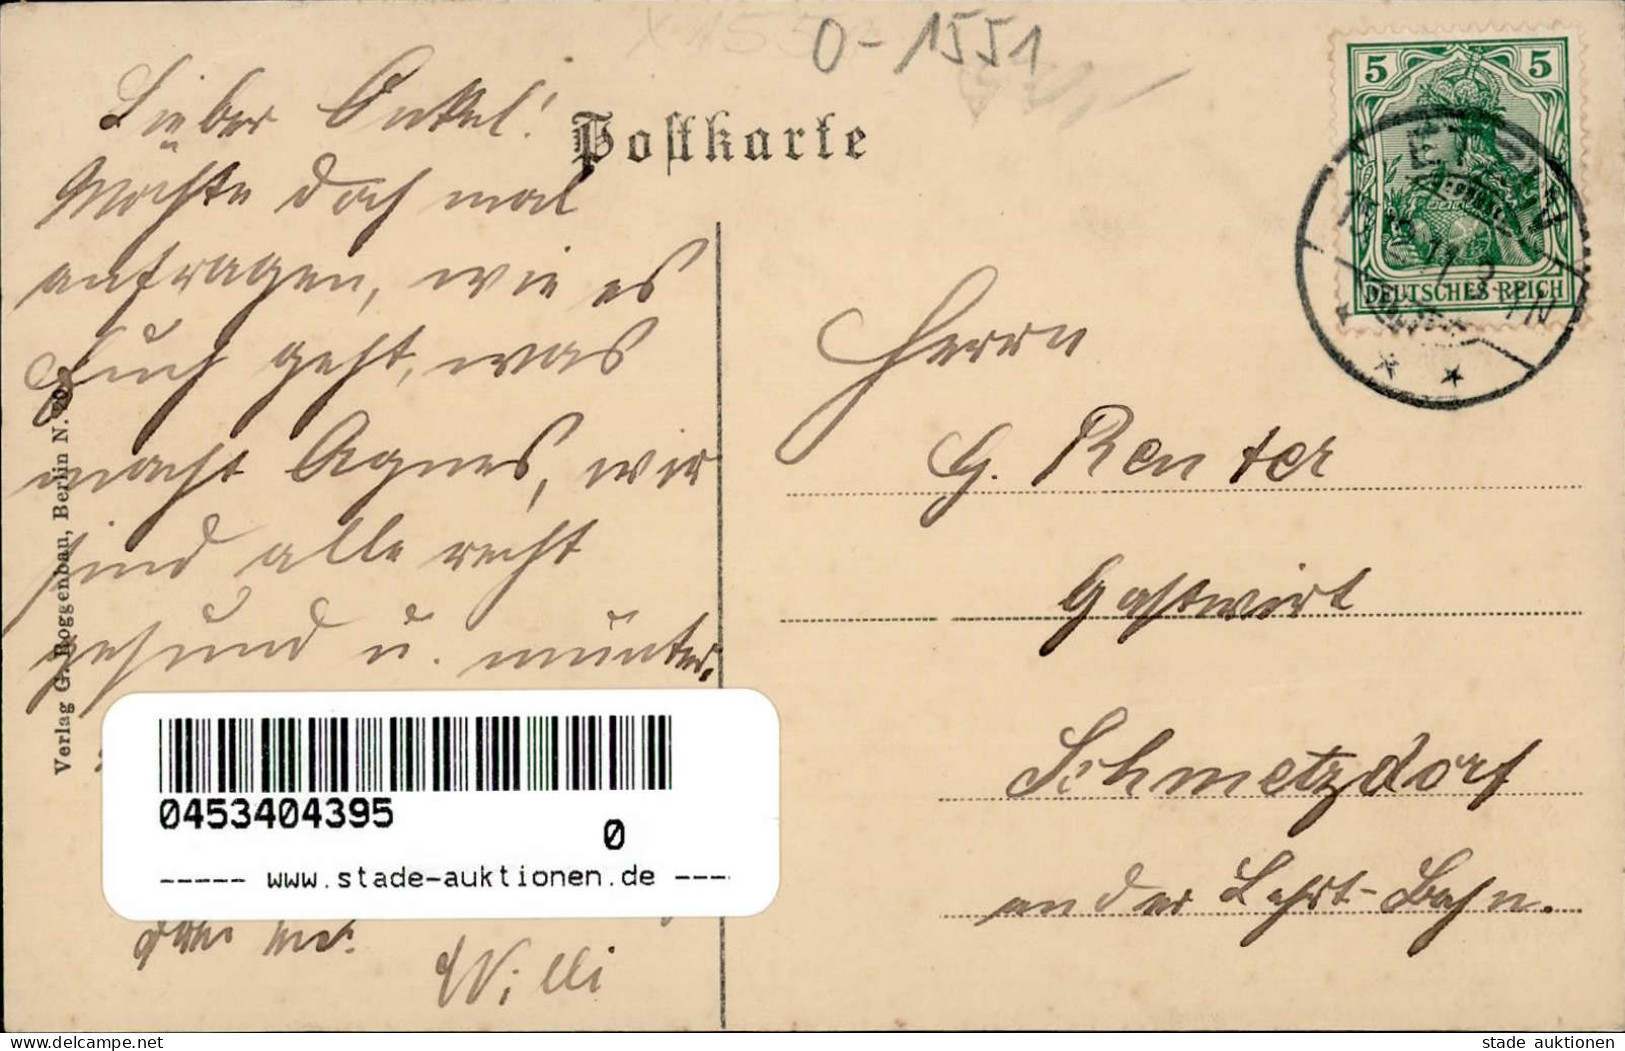 0-1551
Postkarte
Lieber Onkel!
Möchte doch mal
anfragen, wie es
Euch geht, was
macht Agnes, wir
sind alle recht
gesund u. munter.
Willi
Verlag G. Roggenbau, Berlin N. 20.
5 5
DEUTSCHES REICH
11.3-4N
* *
Herrn
G. Reuter
Gastwirt
Schmetzdorf
an der Lehrt-Bahn.
0453404395
0
----- www.stade-auktionen.de ---
stade auktionen